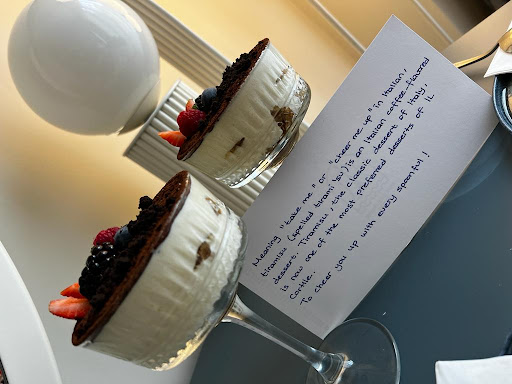 Meaning "take me" or "cheer me up" in Italian,
tiramisu (spelled tirami 'su) is an Italian coffee-flavored
dessert. Tiramisu, the classic dessert of Italy,
is now one of the most preferred desserts of IL
Cortile.
To cheer you up with every spoonful!